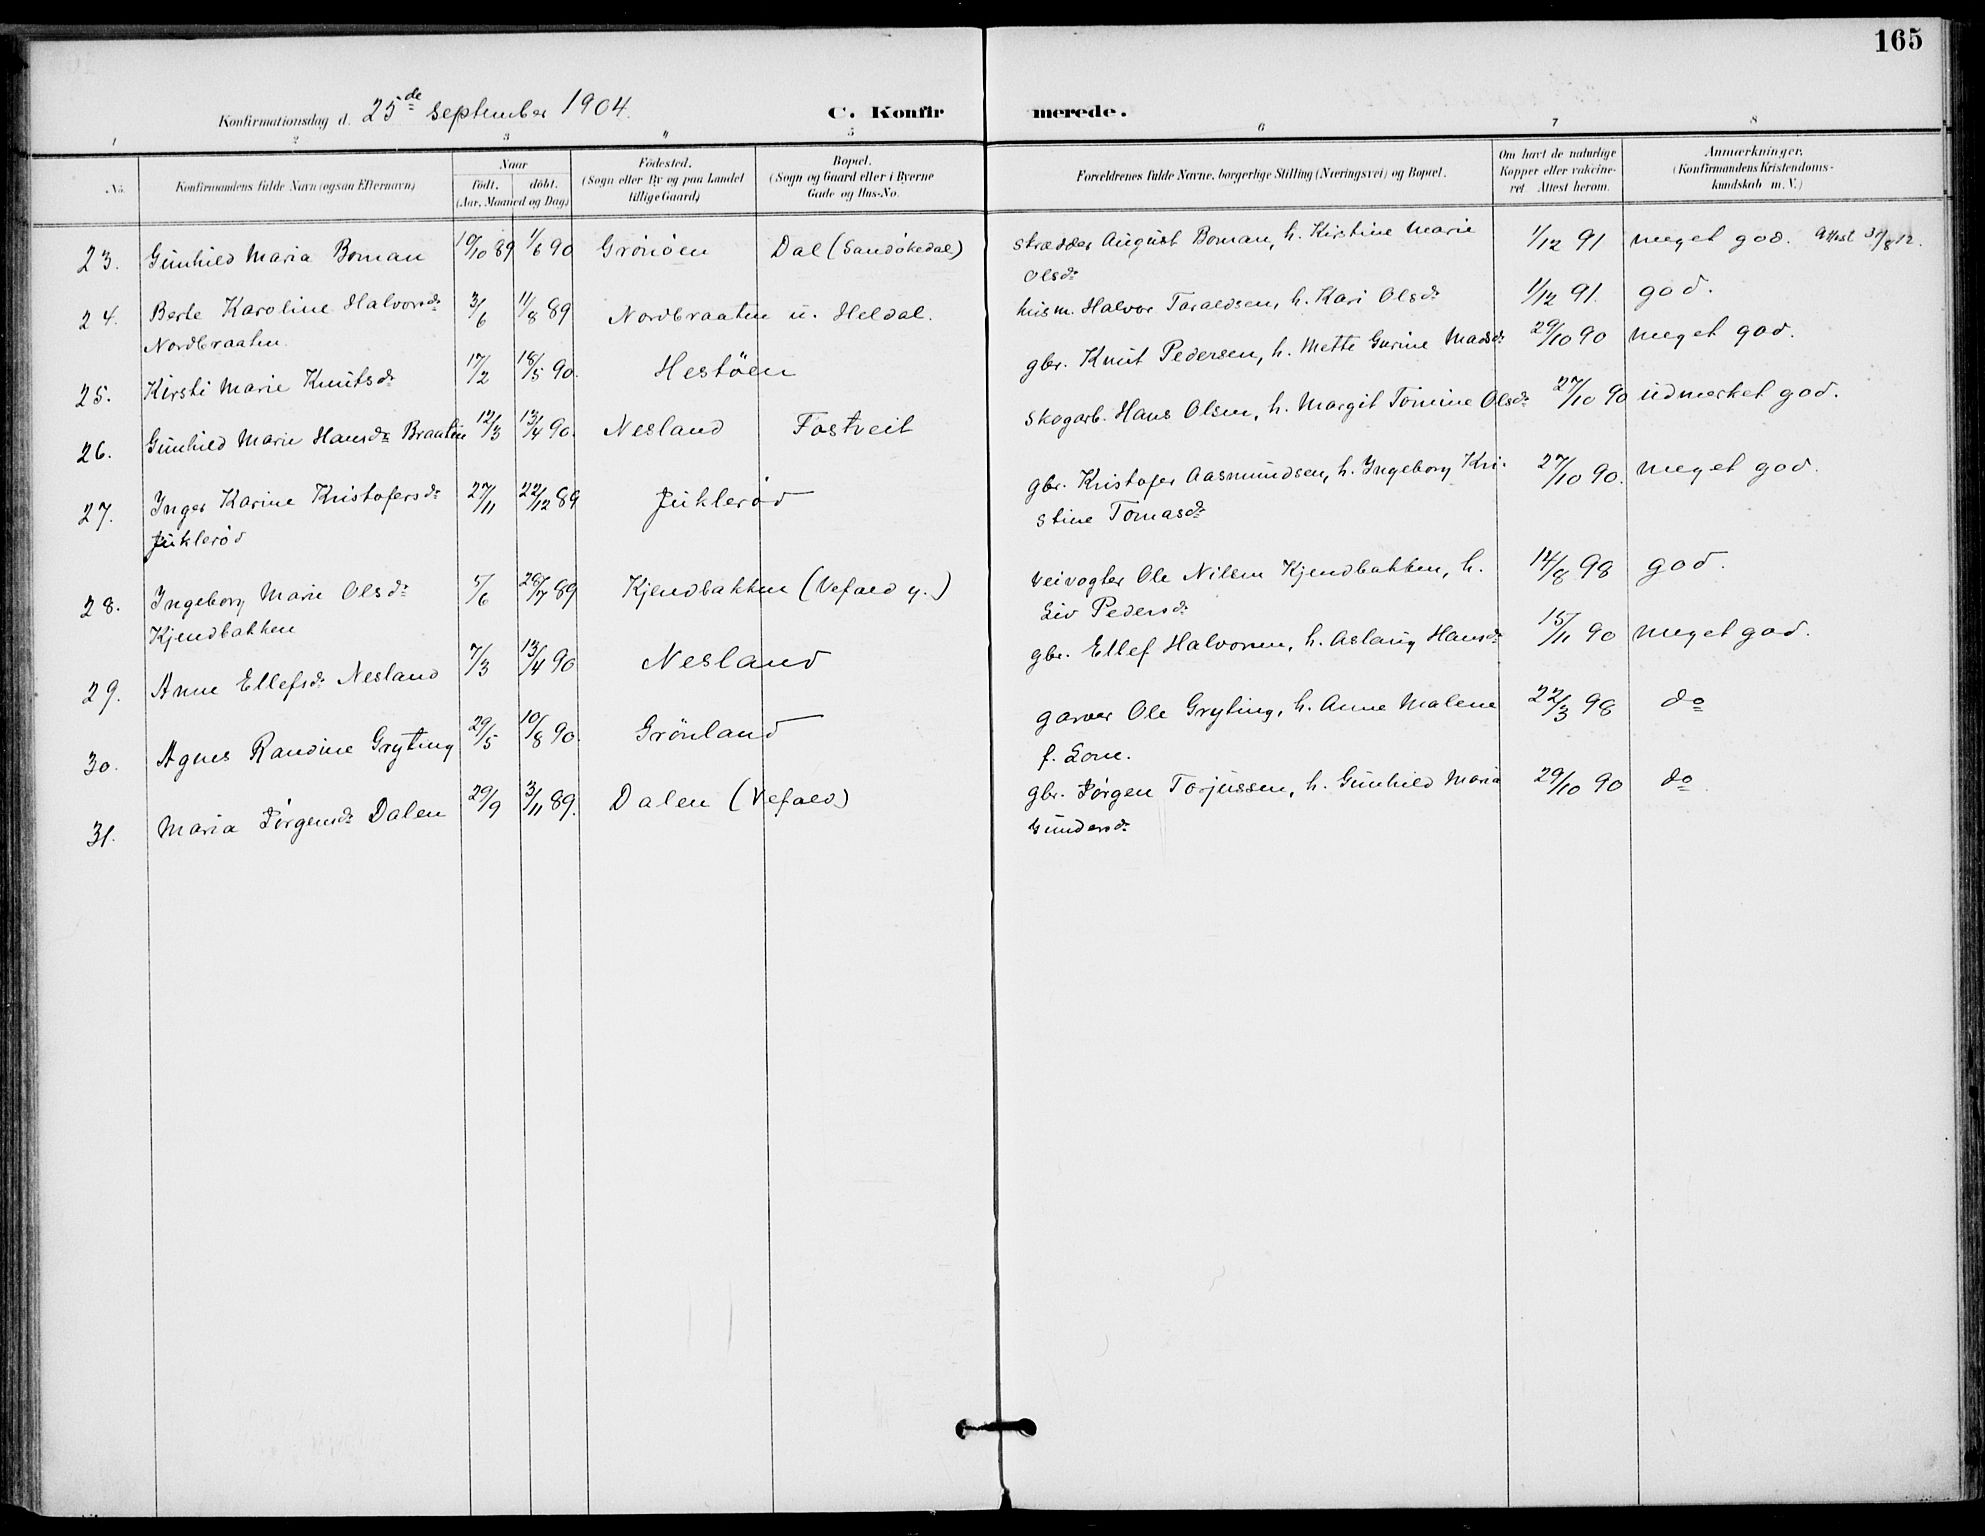 165
Konfirmationsdag d. 25de September 1904. C. Konfirmerede.
1 2 3 " 5 6 7 8
No. Konfirmandens fulde Navn (ogsaa Efternavn) Naar födt. döbt. (Aar, Maaned og Dag) Födested. (Sogn eller By og paa Landet tillige Gaard) Bopæl. (Sogn og Gaard eller i Byerne Gade og Hus-No. Forældrenes fulde Navne, borgerlige Stilling (Næringsvei) og Bopæl. Om havt de naturlige Kopper eller vakcineret. Attest herom. Anmærkninger. (Konfirmandens Kristendomskundskab m. V.)
23. Gunhild Maria Boman 10/10 89 1/6 90 Grönöen Dal (Sandökedal) Skrædder August Boman, h. Kirstine Marie 1/12 91 meget god. Attest 31/8 12.
Olsdr
24. Berte Karoline Halvorsdr 3/6 11/8 89 Nordbraaten u. Heldal. husm. Halvor Taraldsen, h. Kari Olsdr 1/12 91. god.
Nordbraaten
25. Kirsti Marie Knutsdr 17/2 18/5 90. Hestöen gbr. Knut Pedersen, h. Mette Gurine Madsdr 29/10 90 meget god.
26. Gunhild Marie Hansdr Braaten 12/3 13/4 90. Nesland Fostveit skogarb. Hans Olsen, h. Margit Tomine Olsdr 27/10 90 udmerket god.
27. Inger Karine Kristofersdr 27/11 22/12 89 Juklerød gbr. Kristofer Aasmundsen, h. Ingeborg Kri- 27/10 90. meget god.
Juklerød stine Tomasdr
28. Ingeborg Marie Olsdr 5/6 28/7 89 Kjendbakken (Vefald y.) Veivogter Ole Nilsen Kjendbakken, h. 14/8 98 god.
Kjendbakken Liv Pedersdr
29. Anne Ellefsdr Nesland 7/3 13/4 90 Nesland gbr. Ellef Halvorsen, h. Aslaug Hansdr 15/11 90 meget god.
30. Agnes Randine Gryting 29/5 10/8 90. Grönland garver Ole Gryting, h. Anne Malene 22/3 98 do
f. Lone.
31. Maria Jørgensdr Dalen 29/9 3/11 89. Dalen (Vefald) gbr. Jørgen Torjussen, h. Gunhild Maria 29/10 90 do
Gundersdr